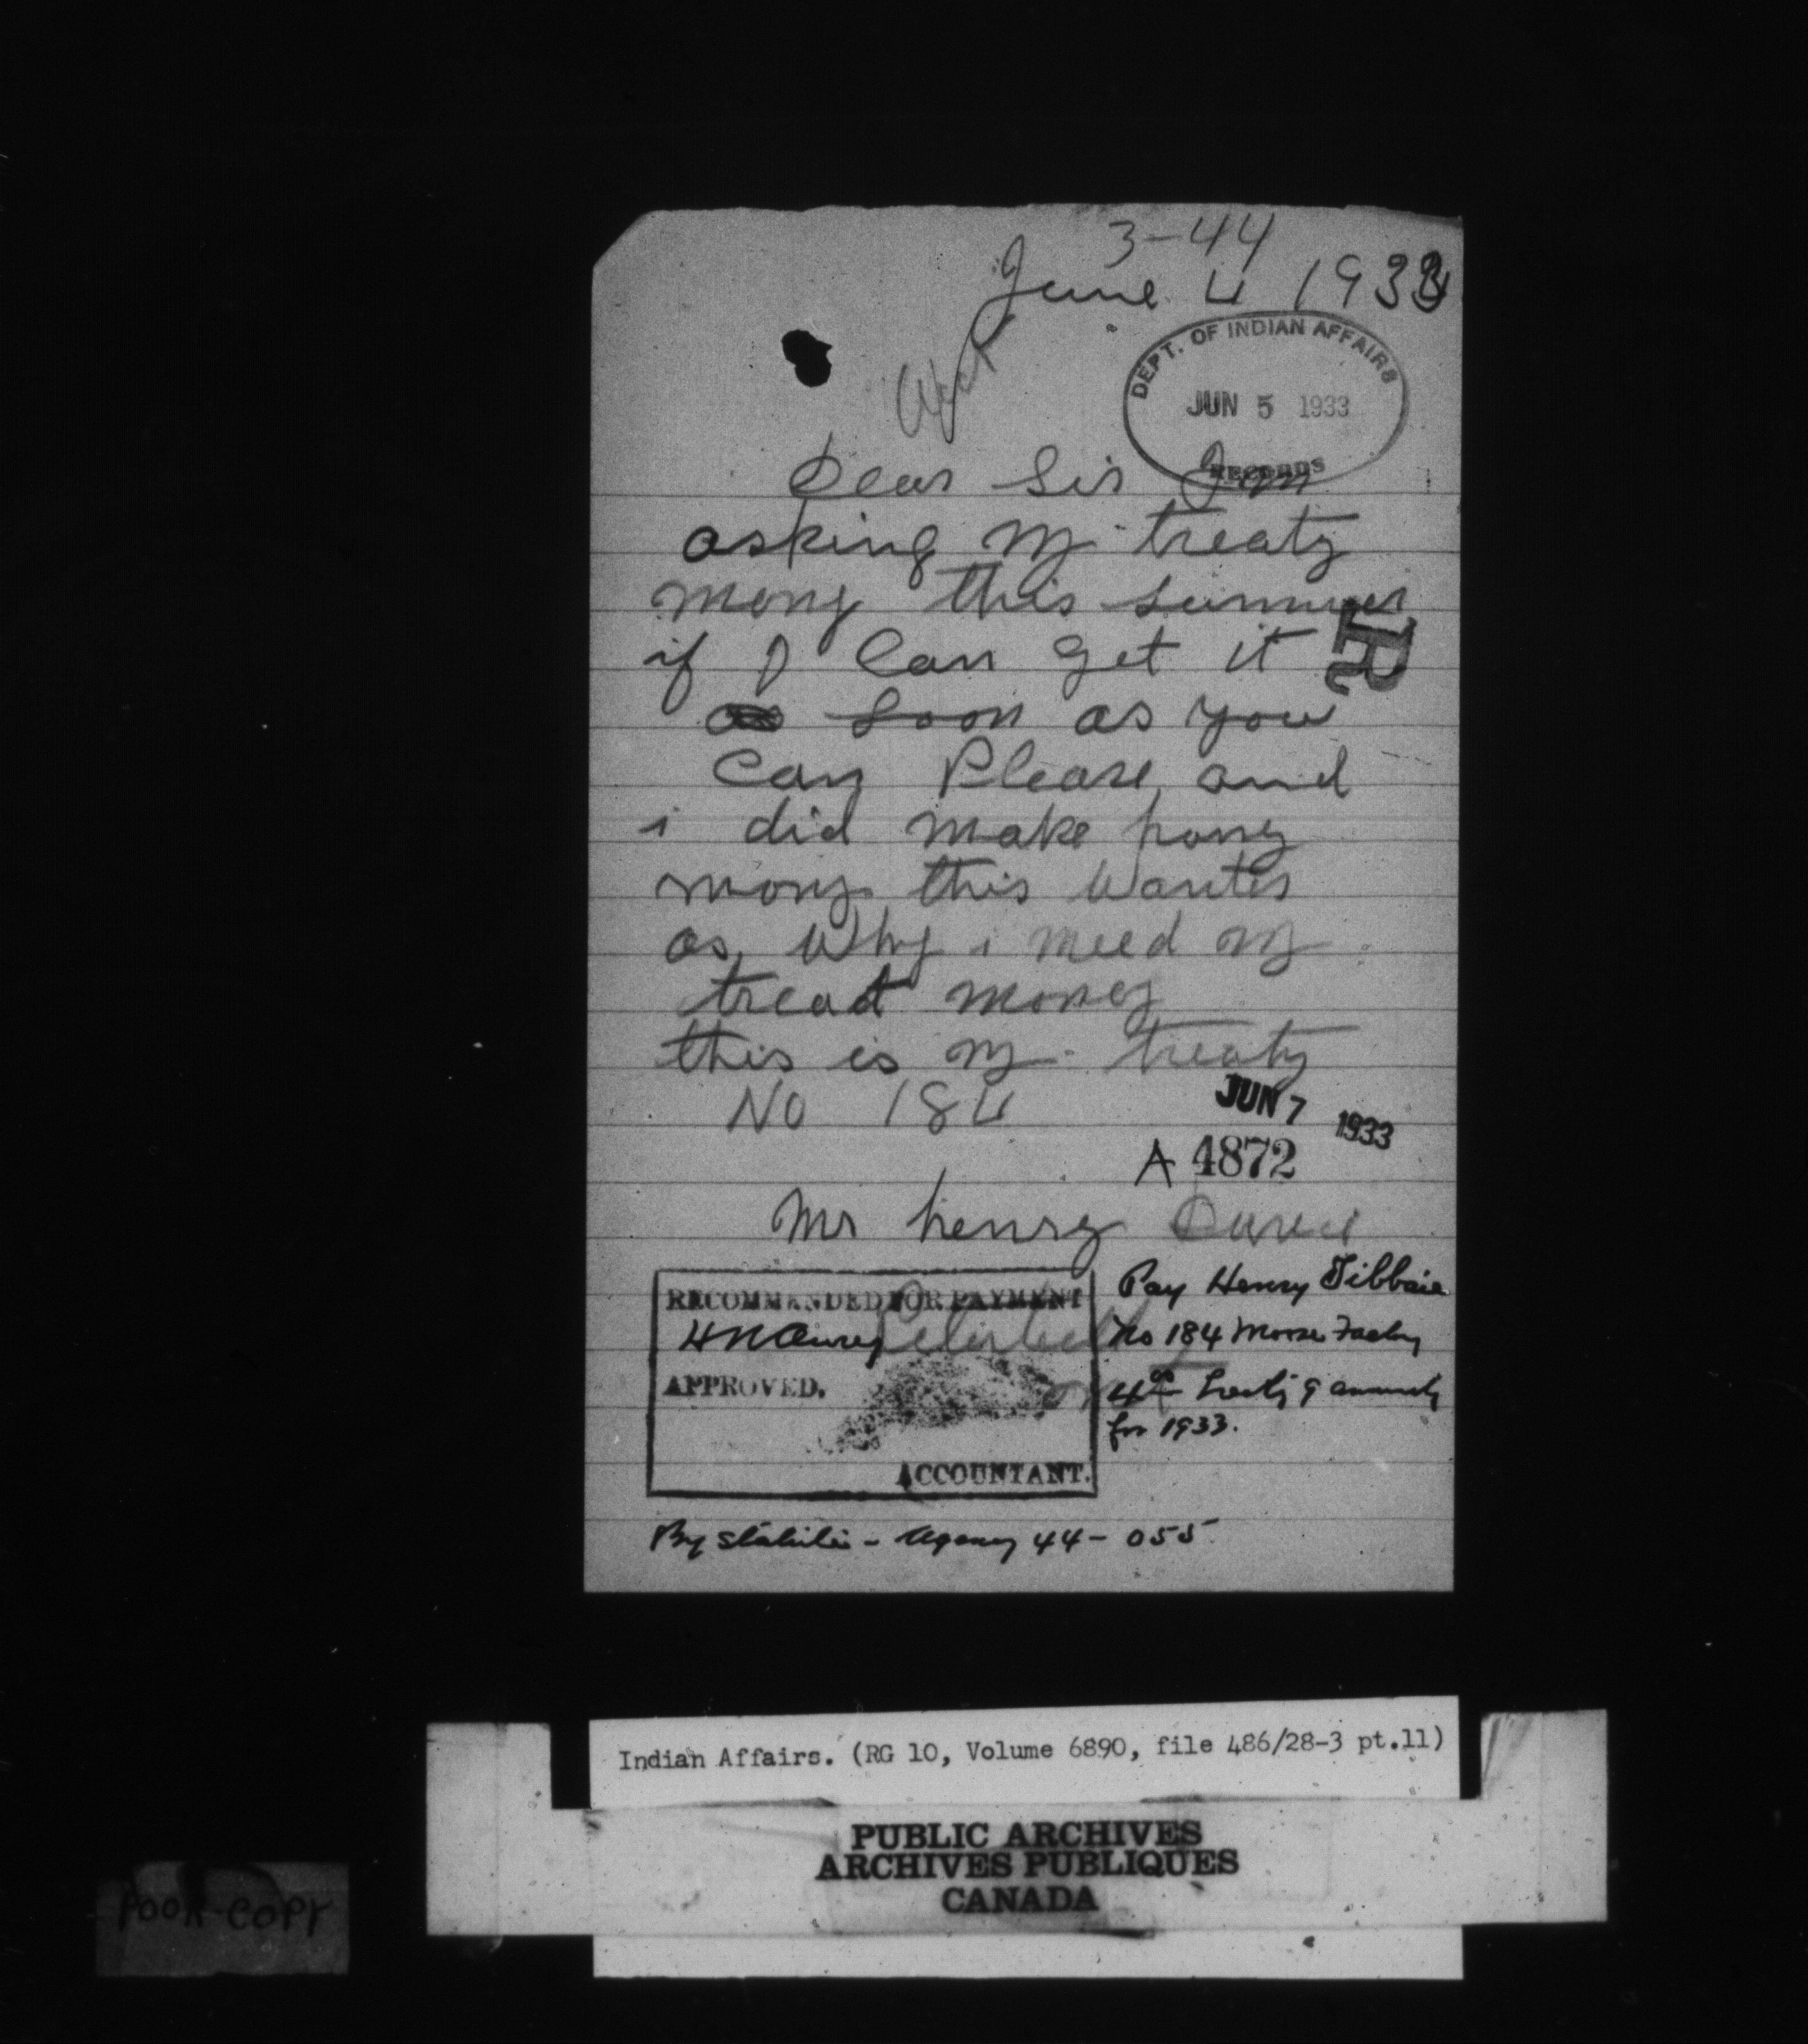 3-44
June 4 1933
DEPT. OF INDIAN AFFAIRS
JUN 5 1933
RECORDS
Dear Sir I m
asking my treaty
mony this summer
if I can get it
R
as soon as you
can Please and
i did make
mony this wanter
as why i need my
treat money
this is my treaty
No 184
JUN 7 1933
A 4872
Mr henry
Pay Henry Tibbaie
RECOMMENDED FOR PAYMENT
No 184 Moose Factory
APPROVED.
4.00 Treaty annuity
for 1933.
ACCOUNTANT.
By - Agency 44 - 055
Indian Affairs. (RG 10, Volume 6890, file 486/28-3 pt.11)
PUBLIC ARCHIVES
ARCHIVES PUBLIQUES
CANADA
POOR COPY